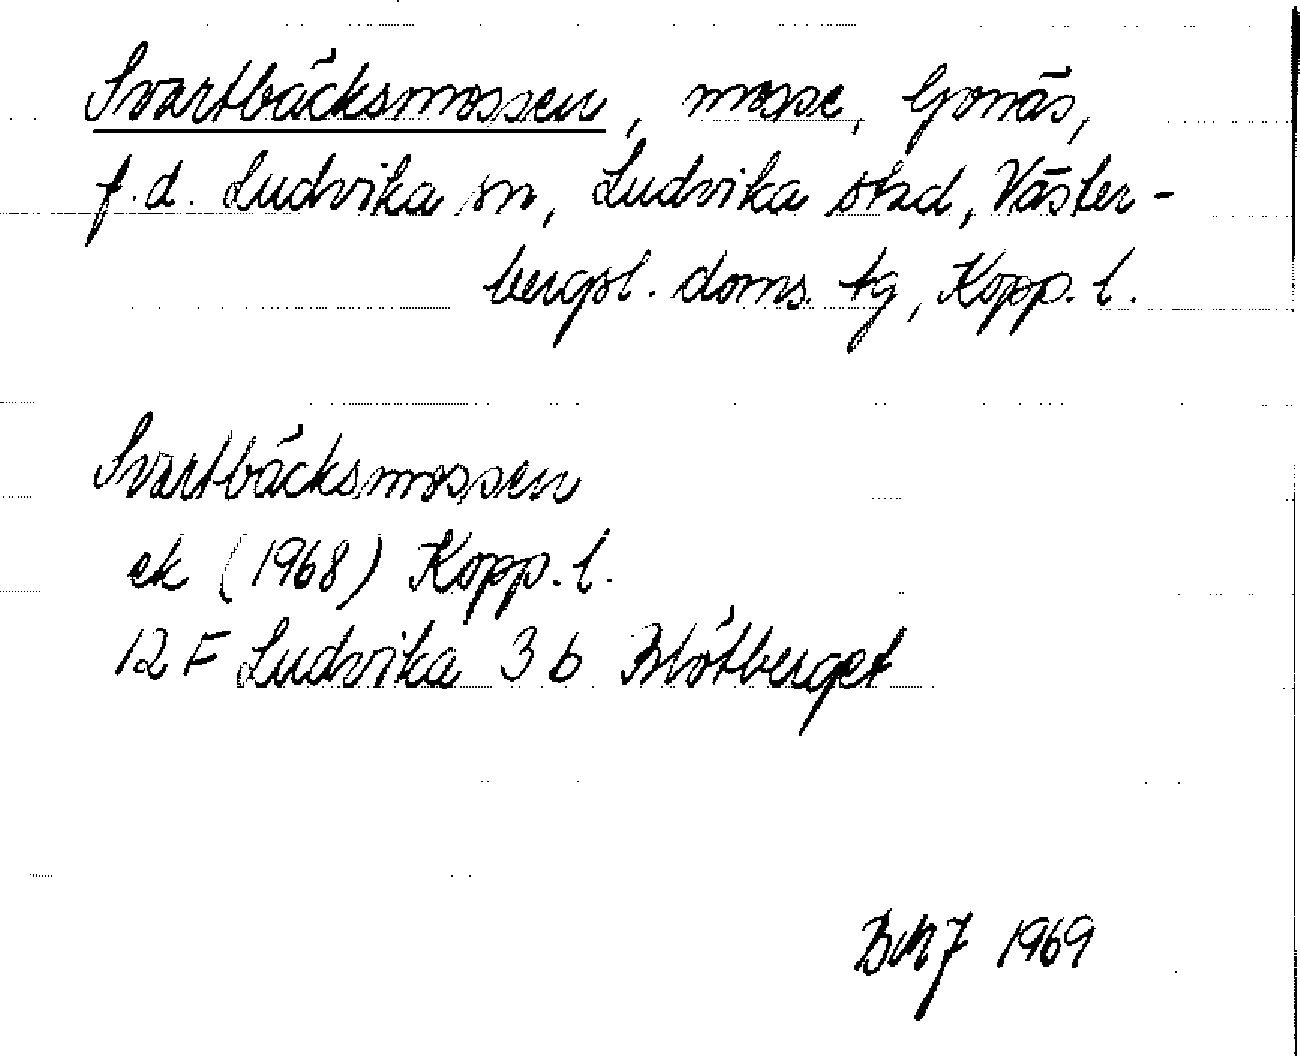 Svartbäcksmossen, mosse, Gonäs,
f.d. Ludvika sn, Ludvika stad, Väster-
bergsl. doms. tg, Kopp. l.
Svartbäcksmossen
ek (1968) Kopp. l.
12 F Ludvika 3 b Blötberget
1969